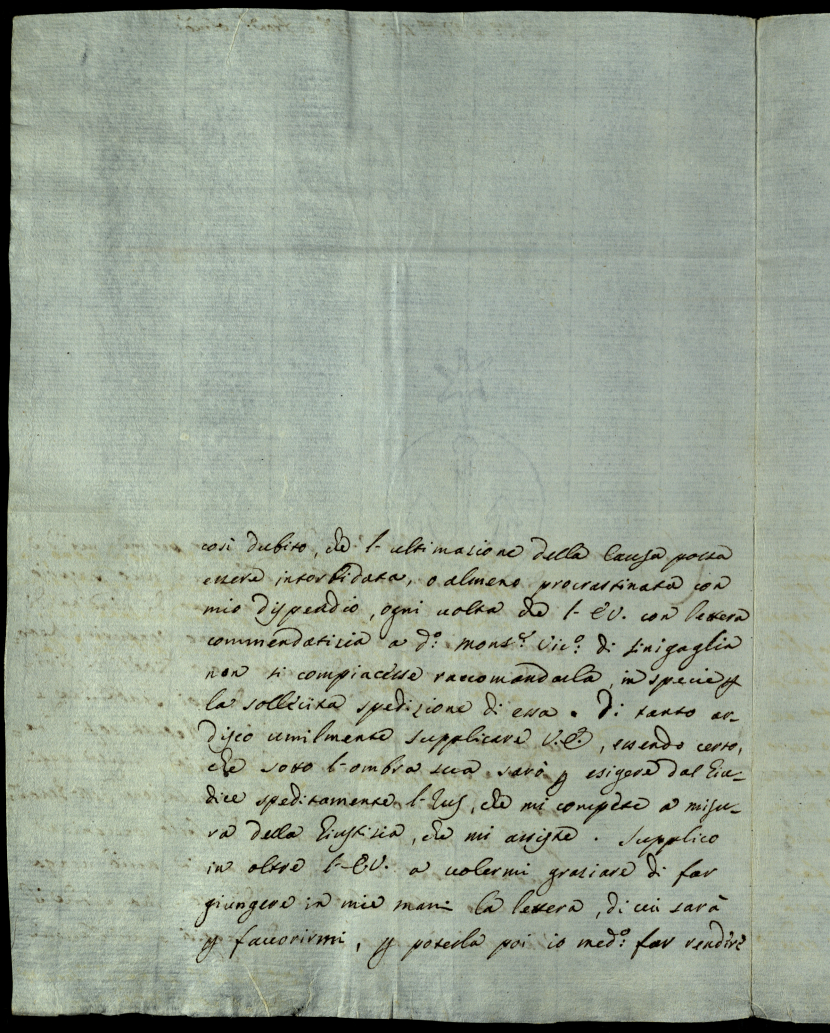 così dubito, che l'ultimazione della Causa possa
essere intorbidata, o almeno procrastinata con
mio dispendio, ogni volta che l'EV. con lettera
commendatizia a d.º Mons.r Vic.º di Sinigaglia
non si compiacesse raccomandarla, in specie p
la sollecita spedizione di essa. Di tanto ar-
disco umilmente supplicare V.E., essendo certo,
che sotto l'ombra sua sarò p esigere dal Giu-
dice speditamente l'Jus, che mi compete a misu-
ra della Giustizia, che mi assiste. Supplico
in oltre l'EV. a volermi graziare di far
giungere in mie mani la lettera, di cui sarà
p favorirmi, p poterla poi io med.º far rendere